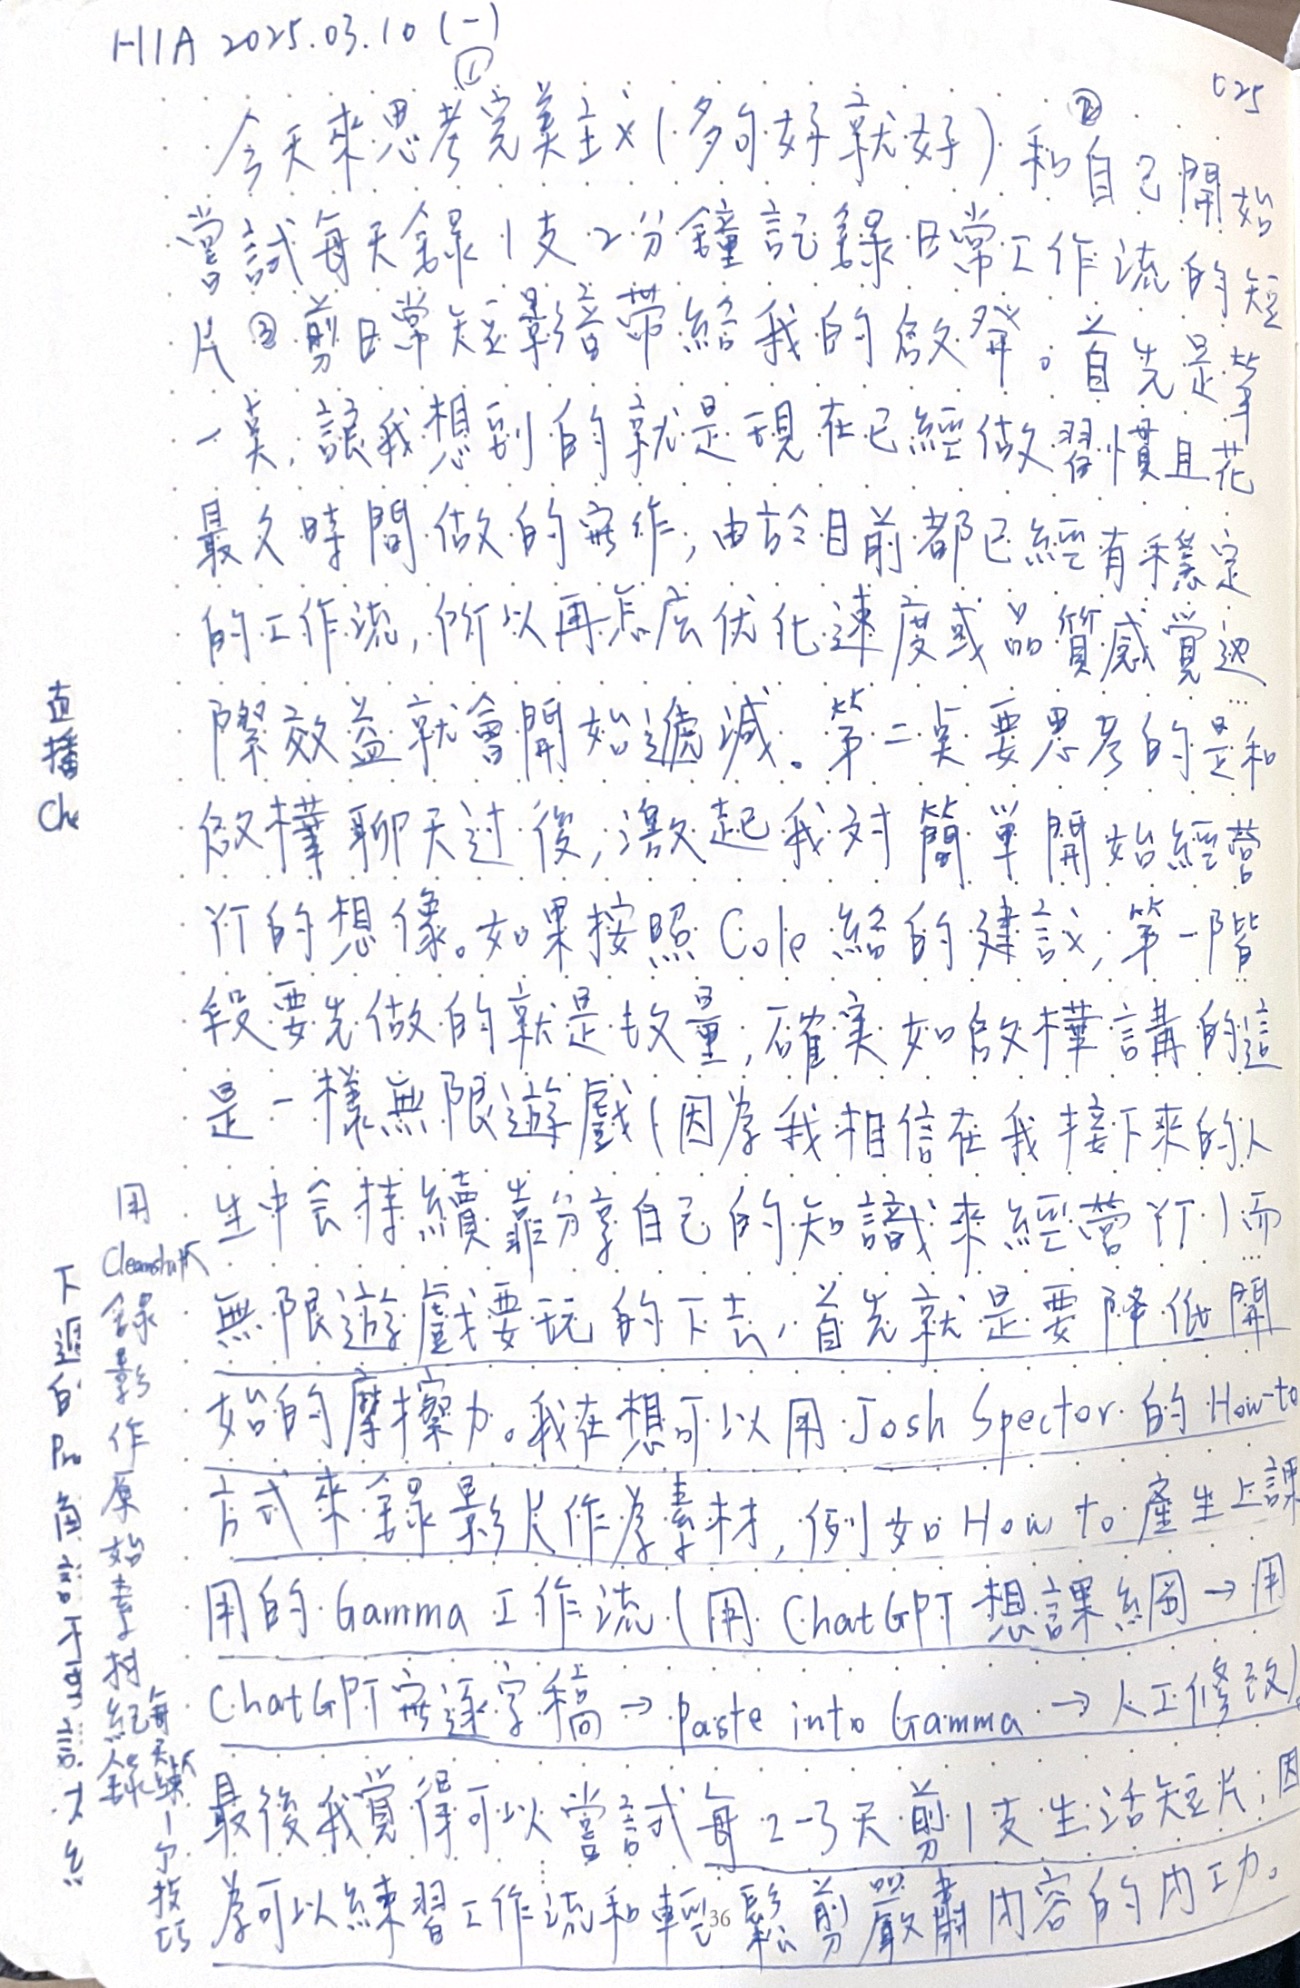 HIA 2025.03.10 (一)
025
今天來思考①完美主义(多句好就好)和②自己開始
嘗試每天錄1支2分鐘記錄日常工作流的短
片③剪日常短影音帶給我的啟發。首先是第
一點,讓我想到的就是現在已經做習慣且花
最久時間做的寫作,由於目前都已經有穩定
的工作流,所以再怎么优化速度或品質感覺边
際效益就會開始遞減。第二點要思考的是和
啟樺聊天过後,激起我对簡單開始經營
YT的想像。如果按照Cole給的建议,第一階
段要先做的就是放量,確实如啟樺講的這
是一樣無限遊戲(因為我相信在我接下來的人
生中会持續靠分享自己的知識來經營YT)而
無限遊戲要玩的下去,首先就是要降低開
始的摩擦力。我在想可以用Josh Spector的How-to
方式來錄影片作為素材,例如How to產生上課
用的Gamma工作流(用ChatGPT想課綱→用
ChatGPT寫逐字稿→paste into Gamma→人工修改)
最後我覺得可以嘗試每2-3天剪1支生活短片,因
為可以練習工作流和輕鬆剪嚴肅內容的內功。
36
直播
用
錄影作原始素材紀錄
每天練一个技巧